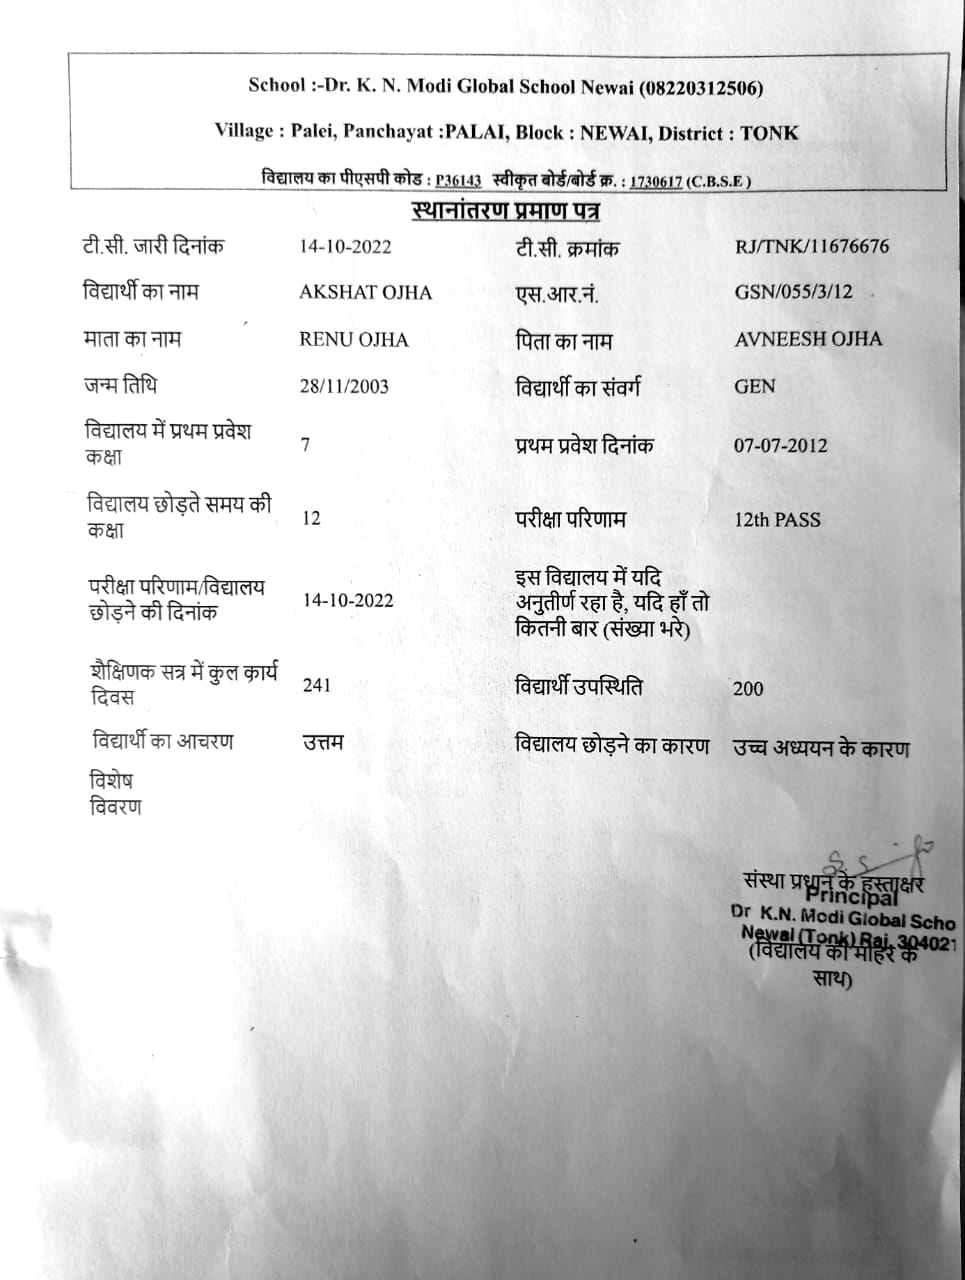 School :-Dr. K. N. Modi Global School Newai (08220312506)
Village : Palei, Panchayat :PALAI, Block : NEWAI, District : TONK
विद्यालय का पीएसपी कोड : P36143 स्वीकृत बोर्ड/बोर्ड क्र. : 1730617 (C.B.S.E )
स्थानांतरण प्रमाण पत्र
टी.सी. जारी दिनांक 14-10-2022 टी.सी. क्रमांक RJ/TNK/11676676
विद्यार्थी का नाम AKSHAT OJHA एस.आर.नं. GSN/055/3/12
माता का नाम RENU OJHA पिता का नाम AVNEESH OJHA
जन्म तिथि 28/11/2003 विद्यार्थी का संवर्ग GEN
विद्यालय में प्रथम प्रवेश
कक्षा 7 प्रथम प्रवेश दिनांक 07-07-2012
विद्यालय छोड़ते समय की
कक्षा 12 परीक्षा परिणाम 12th PASS
परीक्षा परिणाम/विद्यालय
छोड़ने की दिनांक 14-10-2022
इस विद्यालय में यदि
अनुतीर्ण रहा है, यदि हाँ तो
कितनी बार (संख्या भरे)
शैक्षिणक सत्र में कुल कार्य
दिवस 241 विद्यार्थी उपस्थिति 200
विद्यार्थी का आचरण उत्तम विद्यालय छोड़ने का कारण उच्च अध्ययन के कारण
विशेष
विवरण
संस्था प्रधान के हस्ताक्षर
Principal
Dr K.N. Modi Global Scho
Newai (Tonk) Raj. 304021
(विद्यालय की मोहर के
साथ)